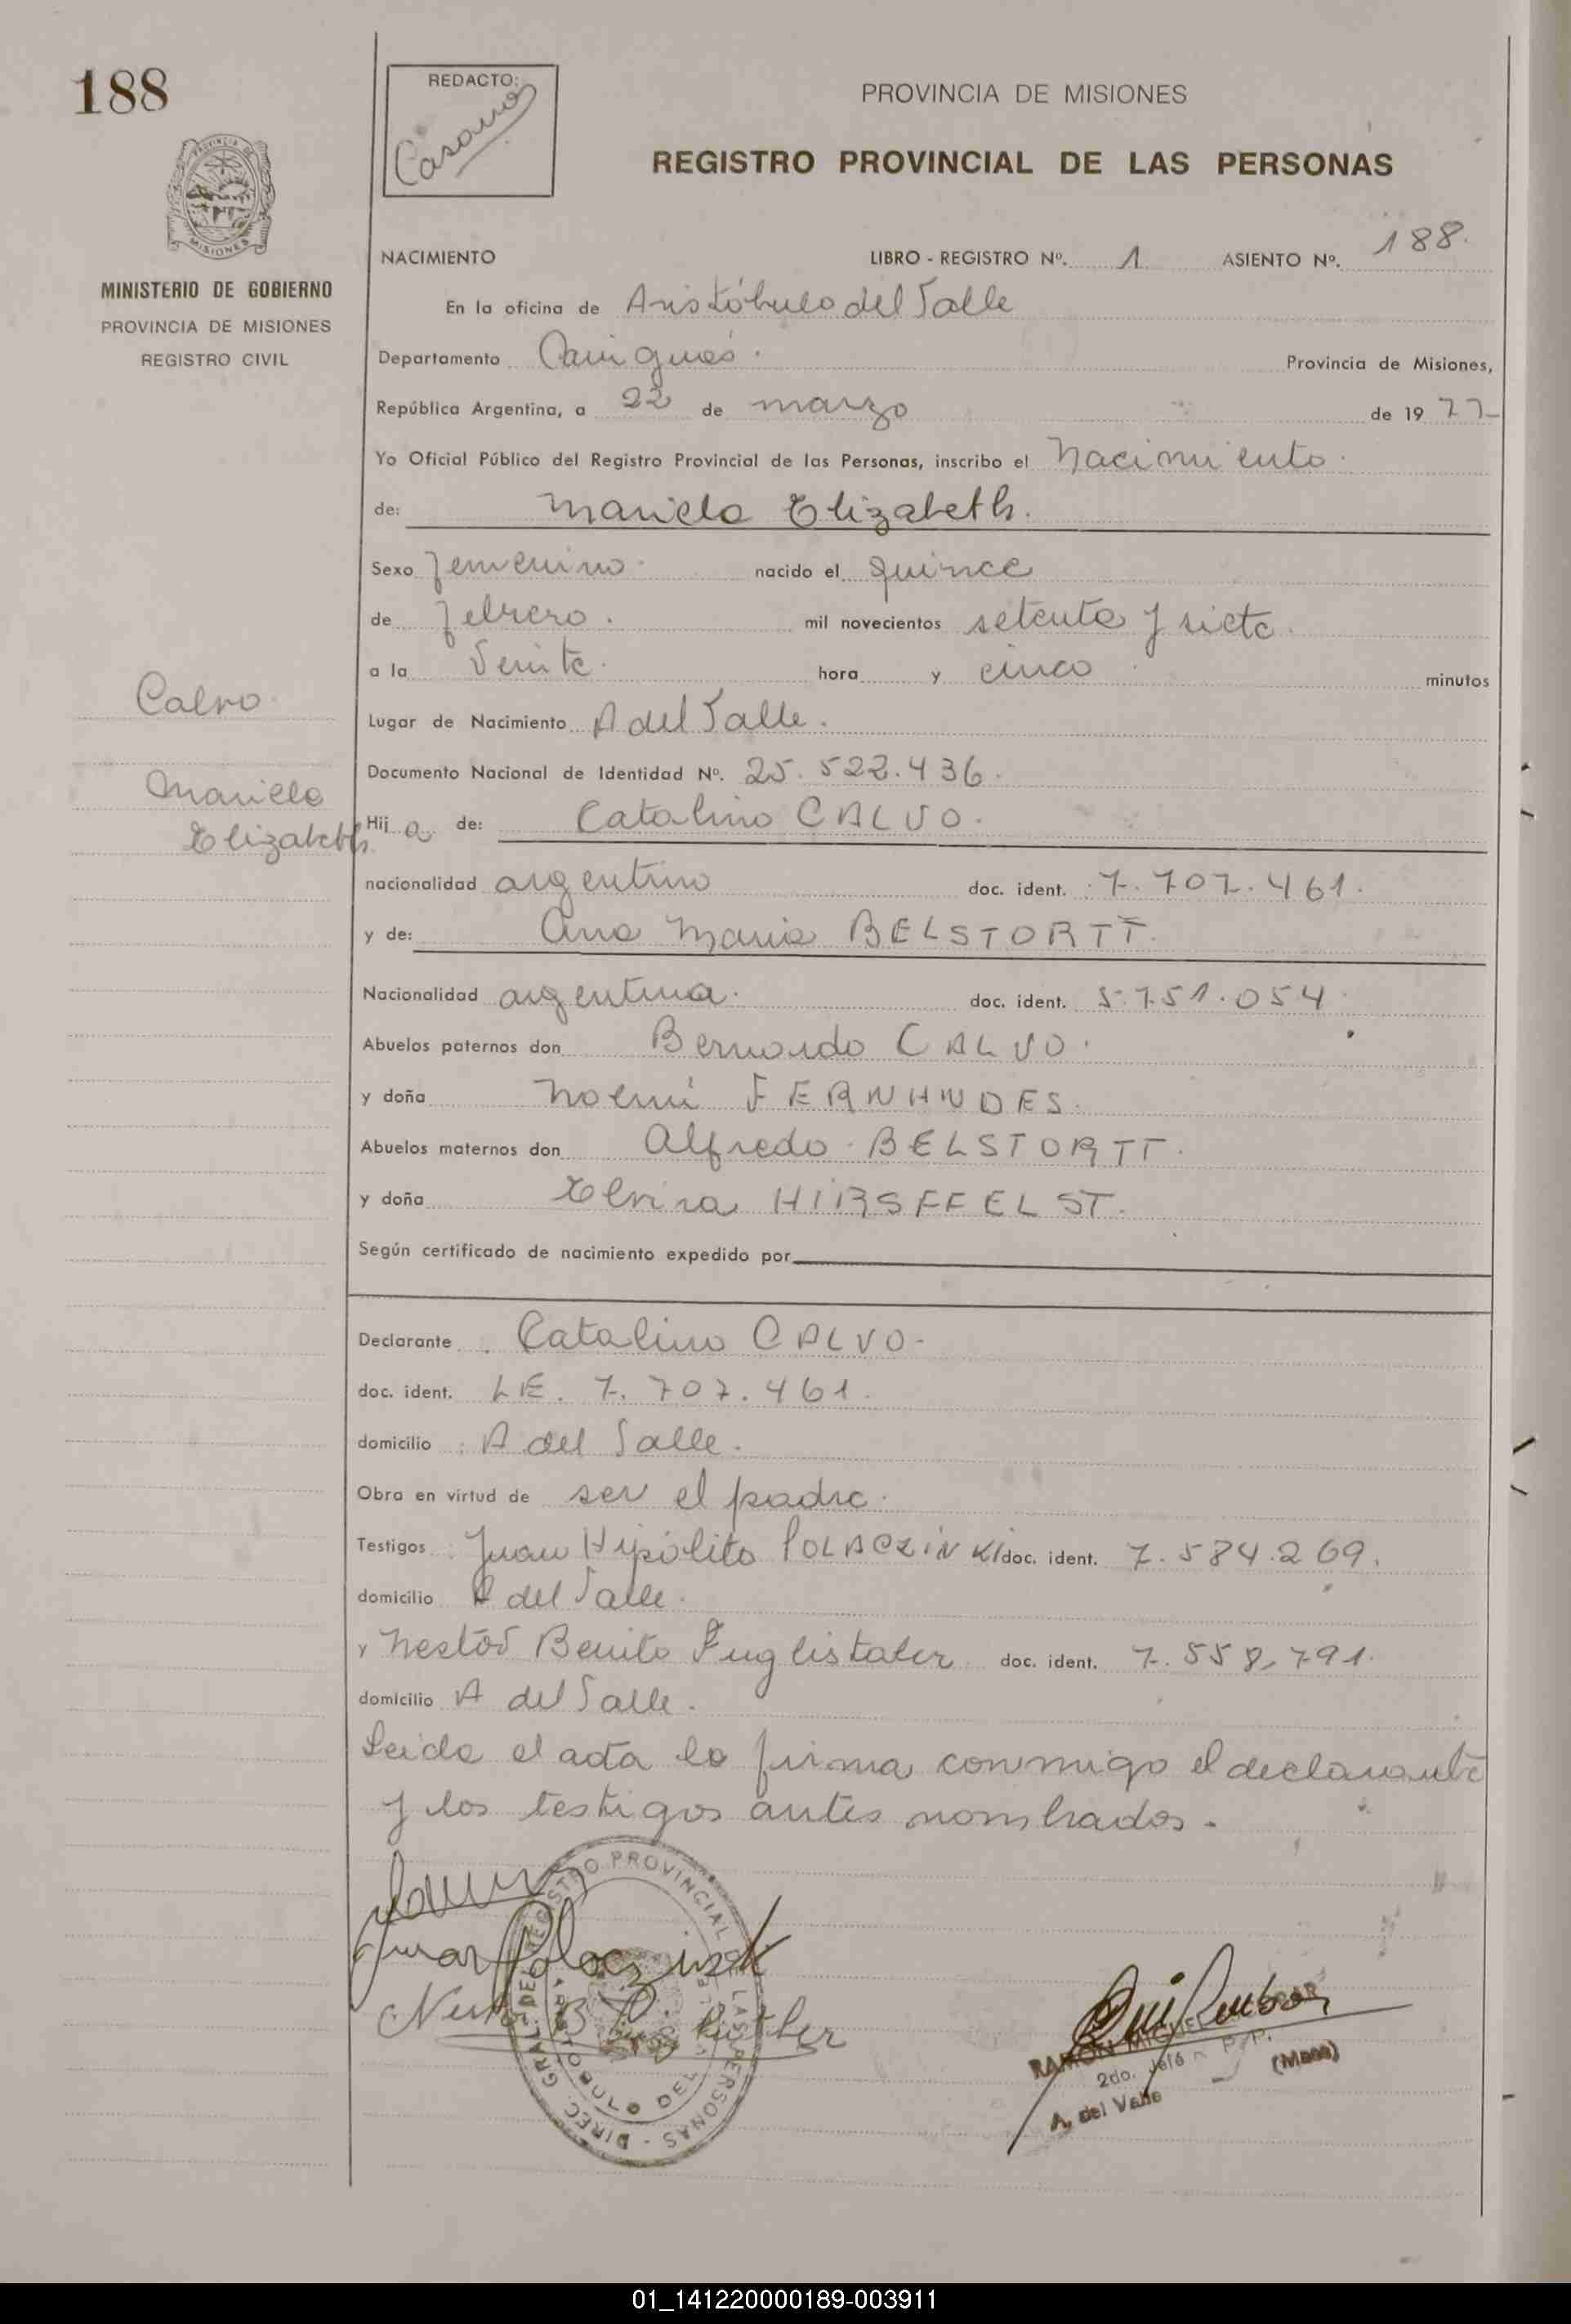 188
REDACTO:
Casano
PROVINCIA DE MISIONES
REGISTRO PROVINCIAL DE LAS PERSONAS
PROVINCIA DE
MISIONES
MINISTERIO DE GOBIERNO
PROVINCIA DE MISIONES
REGISTRO CIVIL
NACIMIENTO LIBRO - REGISTRO Nº. 1 ASIENTO Nº. 188.
En la oficina de Aristóbulo del Valle
Departamento Cainguás. Provincia de Misiones,
República Argentina, a 22 de marzo de 1977
Yo Oficial Público del Registro Provincial de las Personas, inscribo el Nacimiento.
de: Mariela Elizabeth.
Sexo femenino. nacido el quince
de febrero. mil novecientos setenta y siete.
a la Veinte. hora y cinco minutos
Lugar de Nacimiento A del Valle.
Documento Nacional de Identidad Nº. 25.522.436.
Calvo
Mariela
Elizabeth
Hij a de: Catalino CALVO.
nacionalidad argentino doc. ident. 7.707.461.
y de: Ana Maria BELSTORTT.
Nacionalidad argentina. doc. ident. 5.751.054.
Abuelos paternos don Bernardo CALVO.
y doña Noemi FERNANDES.
Abuelos maternos don Alfredo BELSTORTT.
y doña Elvira HIRSFFELST.
Según certificado de nacimiento expedido por
Declarante Catalino CALVO.
doc. ident. LE. 7.707.461.
domicilio A del Valle.
Obra en virtud de ser el padre.
Testigos Juan Hipólito POLACZINKI doc. ident. 7.584.269.
domicilio A del Valle.
y Nestor Benito Fuglistaler doc. ident. 7.558.791.
domicilio A del Valle.
Leida el acta la firma conmigo el declarante
y los testigos antes nombrados.
Juan Polaczinski
DIREC. GRAL. DEL REGISTRO PROVINCIAL DE LAS PERSONAS
ARISTOBULO DEL VALLE
RAMON MIGUEL
2do. Jefe P/P.
A. del Valle (Mnes)
01_141220000189-003911